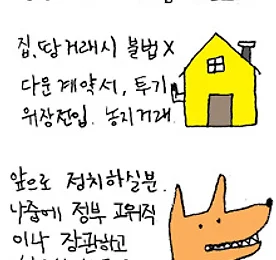 집, 땅 거래시 불법 X
다운 계약서, 투기
위장전입. 농지거래.
앞으로 정치하실분.
나중에 정부 고위직
이나 장관하고